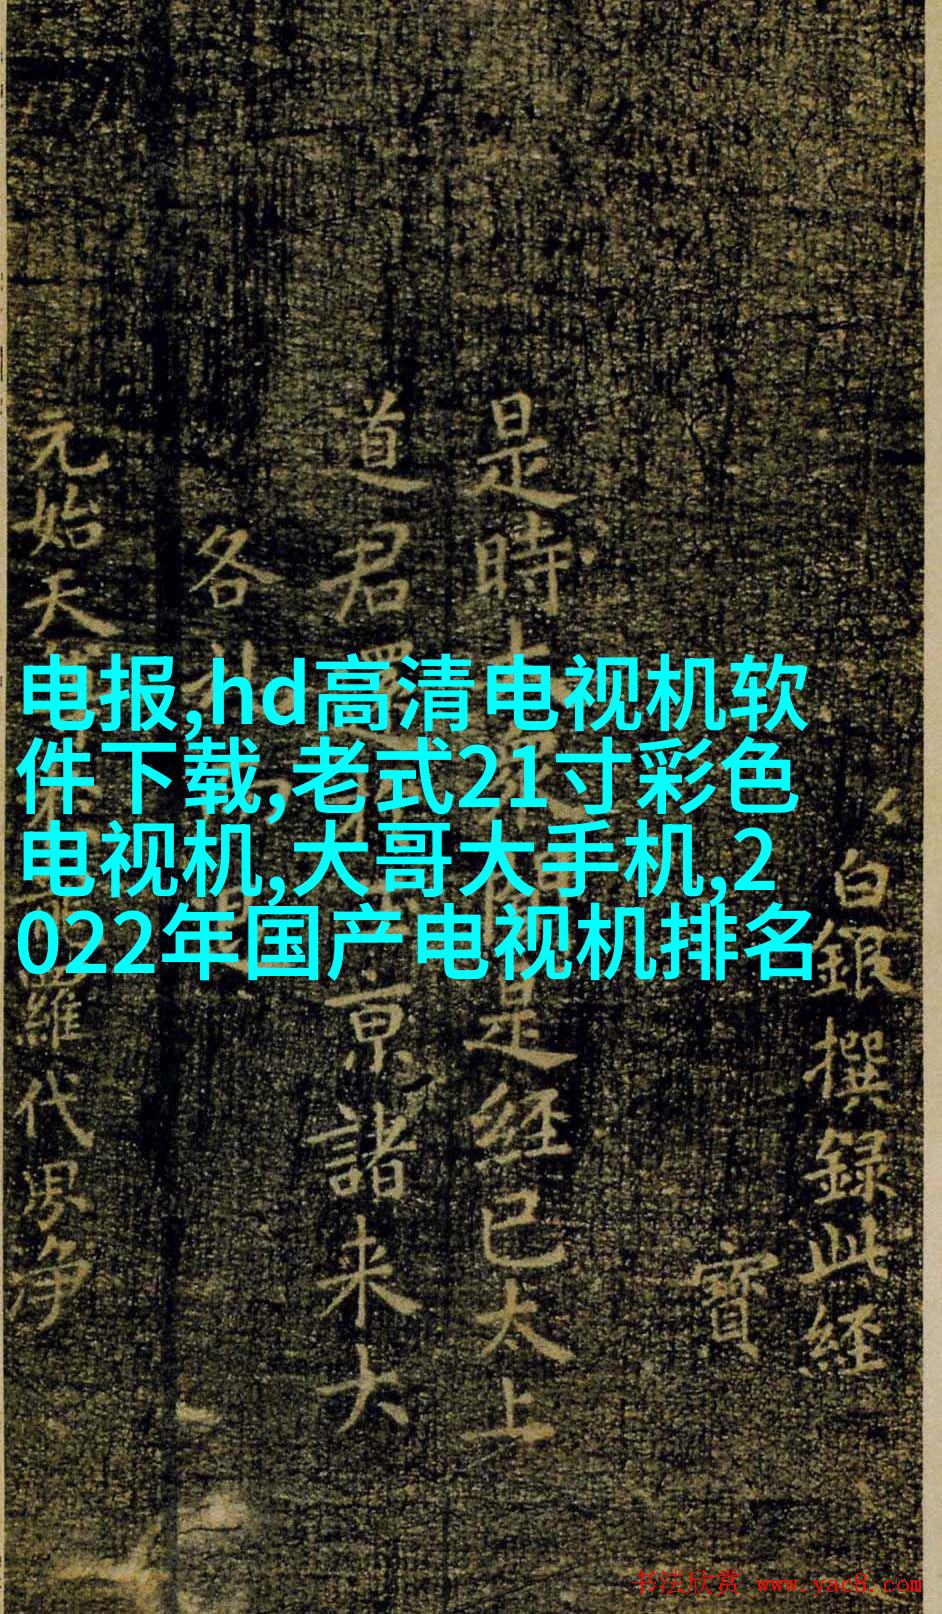 电报,hd高清电视机软
件下载,老式21寸彩色
电视机,大哥大手机,2
022年国产电视机排名
白銀撰録此經
寶
是時是經已太上
道君京諸来大
各
元始天羅代界净
书法欣赏 www.yac8.com